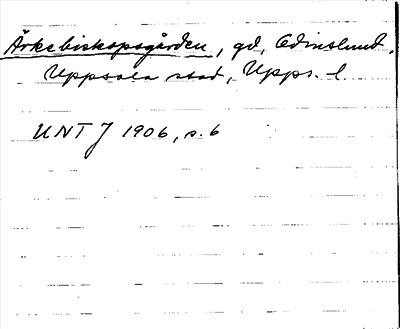 Ärkebiskopsgården, gd, Odinslund,
Uppsala stad, Upps. l.
UNT J 1906, s. 6